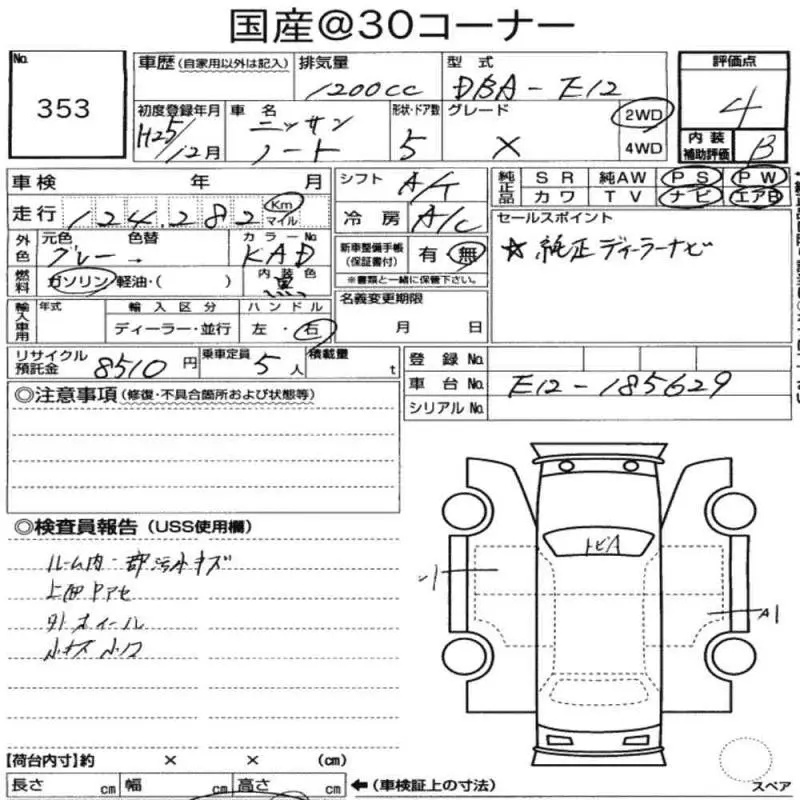 国産@30コーナー
No. 353
車歴 (自家用以外は記入)
排気量 1200cc
型式 DBA-E12
評価点 4
初度登録年月 H25/12月
車名 ニッサン ノート
形状・ドア数 5
グレード X
2WD
4WD
内装補助評価 B
車検 年 月
シフト A/T
純正品 SR 純AW PS PW
カワ TV ナビ エアB
走行 124,282 Km マイル
冷房 A/C
セールスポイント
☆純正ディーラーナビ
外色 元色 グレー 色替 →
カラーNo. KAD
新車整備手帳(保証書付) 有・無
※書類と一緒に保管下さい。
燃料 ガソリン・軽油・( )
内装色 黒
名義変更期限
月 日
輸入車用 年式 輸入区分 ハンドル
ディーラー・並行 左・右
リサイクル預託金 8510円
乗車定員 5人
積載量 t
登録No.
車台No. E12-185629
シリアルNo.
◎注意事項(修復・不具合箇所および状態等)
◎検査員報告(USS使用欄)
ルーム内一部汚れキズ
外ホイール
小キズ
トビA
A1
【荷台内寸】約 × × (cm)
長さ cm 幅 cm 高さ cm
←(車検証上の寸法)
スペア